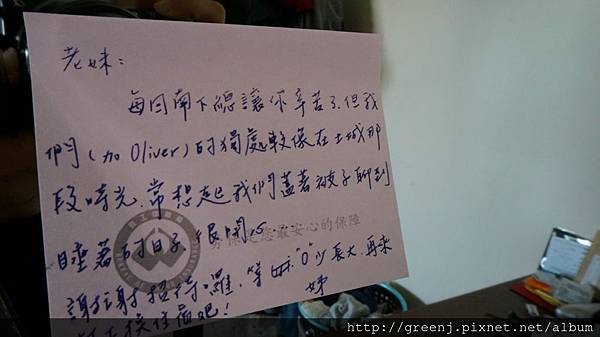 老妹：
每回南下總讓你辛苦了.但我
們(no Oliver)的獨處較像在土城那
段時光.常想起我們蓋著被子聊到
睡著的日子.很開心...
勞保是您最安心的保障
謝謝招待囉.等 "O"少長大.再來
換住窩吧!
姊
http://greenj.pixnet.net/album